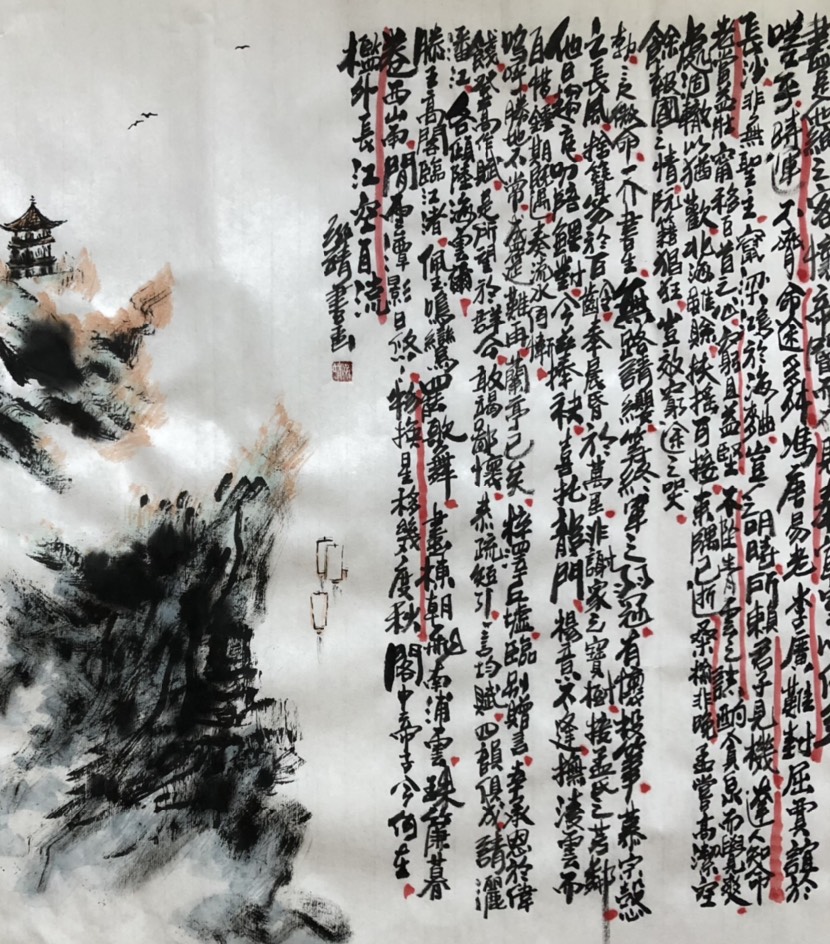 盡是他鄉之客懷帝閽而不見奉宣室以何年
嗟乎時運不齊命途多舛馮唐易老李廣難封屈賈誼於
長沙非無聖主竄梁鴻於海曲豈乏明時所賴君子見機達人知命
老當益壯寧移白首之心窮且益堅不墜青雲之志酌貪泉而覺爽
處涸轍以猶歡北海雖賒扶搖可接東隅已逝桑榆非晚孟嘗高潔空
餘報國之情阮籍猖狂豈效窮途之哭
勃三尺微命一介書生無路請纓等終軍之弱冠有懷投筆慕宗愨
之長風捨簪笏於百齡奉晨昏於萬里非謝家之寶樹接孟氏之芳鄰
他日趨庭叨陪鯉對今茲捧袂喜托龍門楊意不逢撫凌雲而
自惜鍾期既遇奏流水何慚
嗚呼勝地不常盛筵難再蘭亭已矣梓澤丘墟臨別贈言幸承恩於偉
餞登高作賦是所望於群公敢竭鄙懷恭疏短引一言均賦四韻俱成請灑
潘江各傾陸海雲爾
滕王高閣臨江渚佩玉鳴鸞罷歌舞畫棟朝飛南浦雲珠簾暮
卷西山雨閒雲潭影日悠悠物換星移幾度秋閣中帝子今何在
檻外長江空自流
書画